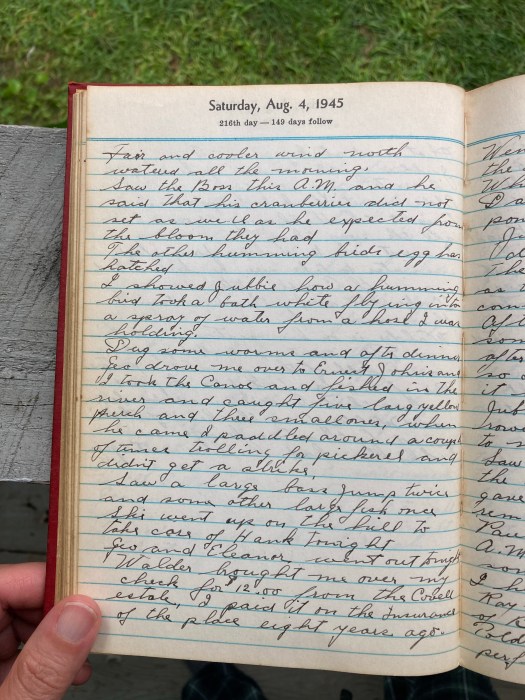 Saturday, Aug. 4, 1945
216th day — 149 days follow
Fair and cooler wind north
watered all the morning.
Saw the Boss this A.M. and he
said that his cranberries did not
set as well as he expected from
the bloom they had
The other humming birds egg has
hatched
I showed Jubbie how a humming
bird took a bath white flying into
a spray of water from a hose I was
holding.
Dug some worms and after dinner
Geo drove me over to Ernest Johnsons
I took the Canoe and fished in the
river and caught five large yellow
perch and three smaller ones, when
he came I paddled around a couple
of times trolling for pickerel and
didn't get a strike,
Saw a large bass jump twice
and some other large fish once
Ski went up on the hill to
take care of Hank tonight
Geo and Eleanor went out tonight
Walder bought me over my
check for $12.00 from the Cobell
estate, I paid it on the Insurance
of the place eight years ago.
Wen
the
Wh
I a
pon
Ju
d
The
as t
com
Af
som
after
so
it
Jub
row
to
Saw
the
gave
rem
Pau
A.M
son
I h
Ray
of
Told
perf